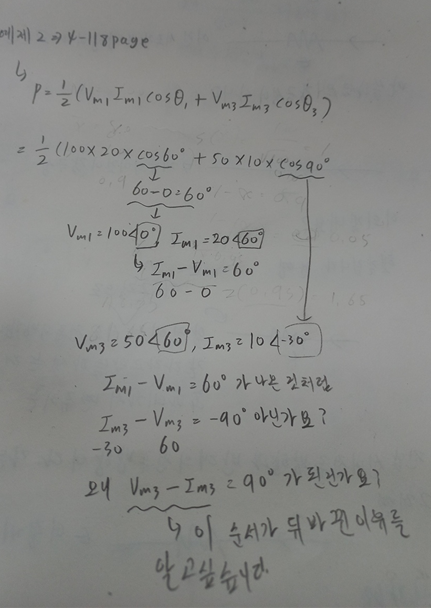 예제2 ⇒ 4-118page
↳ P = 1/2 (Vm1 Im1 cosθ1 + Vm3 Im3 cosθ3)
= 1/2 (100×20×cos60° + 50×10×cos90°
↓
60-0=60°
↓
Vm1=100∠0° Im1=20∠60°
↳ Im1-Vm1=60°
60-0
Vm3=50∠60°, Im3=10∠-30°
Im1-Vm1=60°가 나온것처럼
Im3-Vm3=-90° 아닌가요?
-30 60
왜 Vm3-Im3=90°가 된건가요?
↳ 이 순서가 뒤바뀐 이유를
알고싶습니다.